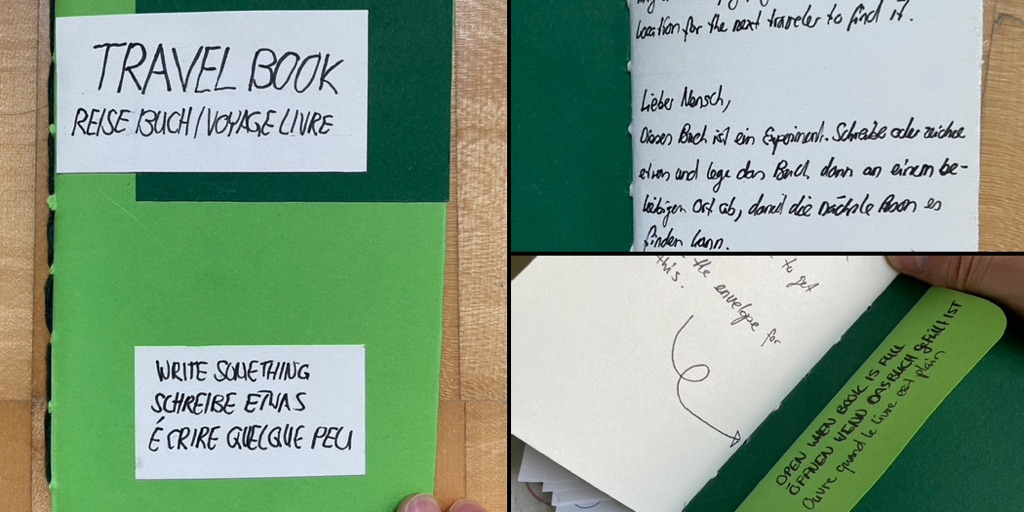 TRAVEL BOOK
REISE BUCH / VOYAGE LIVRE
WRITE SOMETHING
SCHREIBE ETWAS
ÉCRIRE QUELQUE PEU
location for the next traveler to find it.
Lieber Mensch,
Dieses Buch ist ein Experiment. Schreibe oder zeichne
etwas und lege das Buch dann an einem be-
liebigen Ort ab, damit die nächste Person es
finden kann.
to get
the envelope for
this.
OPEN WHEN BOOK IS FULL
ÖFFNEN WENN DAS BUCH GEFÜLLT IST
Ouvre quand le livre est plain